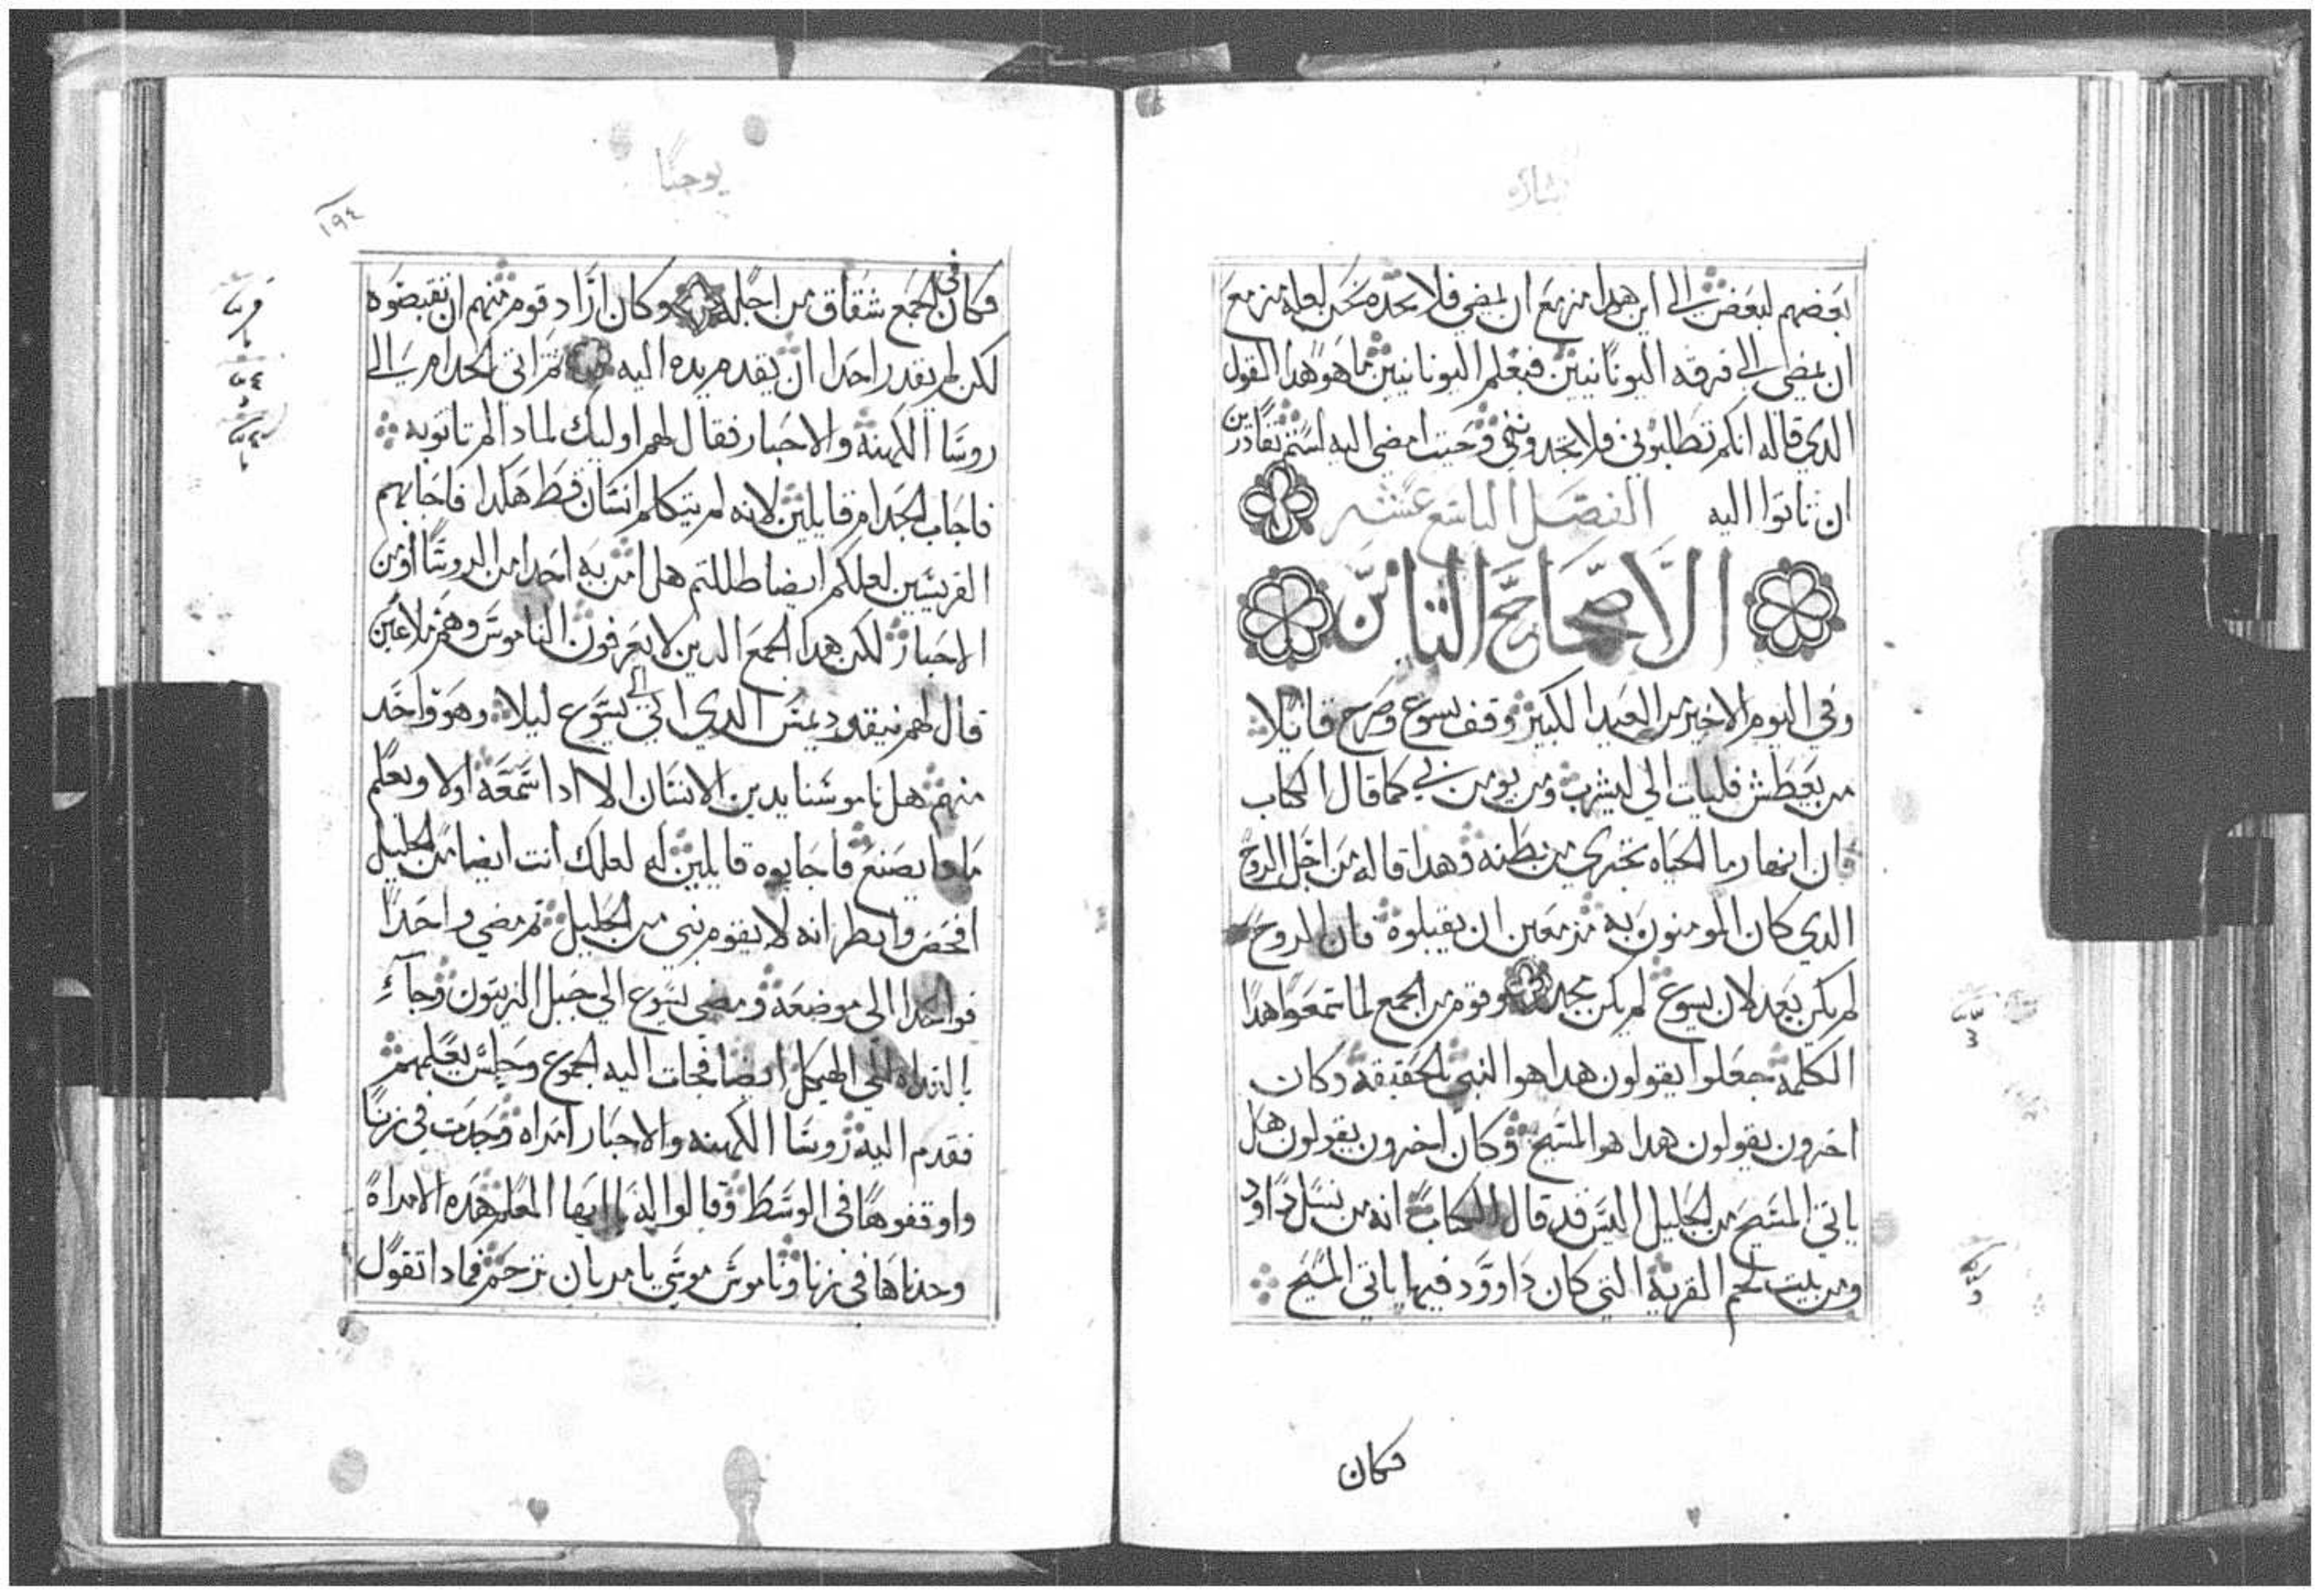 بشاره
بعضهم لبعض الى اين هدا مزمع ان يمضي فلا نجده نحن لعله مزمع
ان يمضي الى فرقه اليونانيين فيعلم اليونانيين ما هو هدا القول
الدي قاله انكم تطلبوني فلا تجدوني وحيت امضي اليه لستم تقادرين
ان تاتوا اليه الفصل التاسع عشر
الاصحاح التامن
وفي اليوم الاخير من العيد الكبير وقف يسوع وصرح قايلا
من يعطش فليات الي ليشرب ومن يومن بي كما قال الكتاب
ان انهار ما الحياه تجري من بطنه وهدا قاله من اجل الروح
الدي كان المومنون به مزمعين ان يقبلوه فان الروح
لم يكن بعد لان يسوع لم يكن مجد وقوم من الجمع لما سمعوا هدا
الكلمه جعلوا يقولون هدا هو النبي بالحقيقه وكان
اخرون يقولون هدا هو المسيح وكان اخرون يقولون هل
ياتي المسيح من الجليل اليس قد قال الكتاب انه من نسل داود
ومن بيت لحم القريه التي كان داوود فيها ياتي المسيح
فكان
يوحنا
١٩٤
فكان في الجمع شقاق من اجله وكان اراد قوم منهم ان يقبضوه
لكن لم يقدر احدا ان يقدم يده اليه تم اتى الخدام الى
روسا الكهنه والاحبار فقال لهم اوليك لمادا لم تاتو به
فاجاب الخدام قايلين لانه لم يتكلم انسان قط هكدا فاجابهم
الفريسيين لعلكم ايضا ظللتم هل امن به احدا من الروسا او من
الاحبار لكن هدا الجمع الدين لا يعرفون الناموس وهم ملاعين
قال لهم نيقوديمس الدي اتى الى يسوع ليلا وهو واحد
منهم هل ناموسنا يدين الانسان الا ادا سمعه اولا ويعلم
مادا يصنع فاجابوه قايلين له لعلك انت ايضا من الجليل
افحص وانظر انه لا يقوم نبي من الجليل تم مضي واحدا
فواحدا الى موضعه ومضى يسوع الى جبل الزيتون وجاء
بالغداه الى الهيكل ايضا فجات اليه الجموع وجلس يعلمهم
فقدم اليه روسا الكهنه والاحبار امراه وجدت في زنا
واوقفوها في الوسط وقالوا له يا ايها المعلم هده الامراه
وجدناها في زنا وناموس موسى يامر بان ترجم فمادا تقول